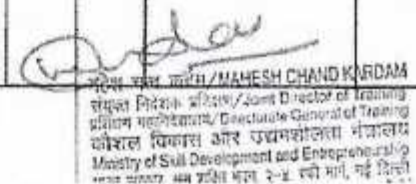 महेश चन्द कर्दम/MAHESH CHAND KARDAM
संयुक्त निदेशक प्रशिक्षण/Joint Director of Training
प्रशिक्षण महानिदेशालय/Directorate General of Training
कौशल विकास और उद्यमशीलता मंत्रालय
Ministry of Skill Development and Entrepreneurship
भारत सरकार, श्रम शक्ति भवन, २-४ रफी मार्ग, नई दिल्ली